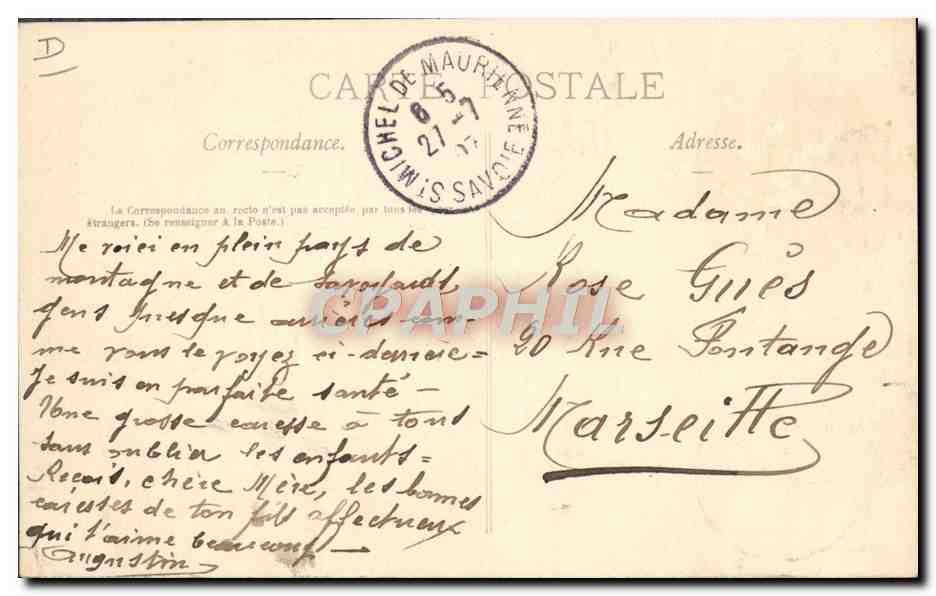 D
CARTE POSTALE
ST MICHEL DE MAURIENNE
6 5
27 -7
07
SAVOIE
Correspondance.
Adresse.
La Correspondance au recto n'est pas acceptée par tous les
étrangers. (Se renseigner à la Poste.)
Me voici en plein pays de
montagne et de
gens presque arriérés com-
me vous le voyez ci-derrière =
Je suis en parfaite santé -
Une grosse caresse à tous
sans oublier les enfants =
Reçois, chère Mère, les bonnes
caresses de ton fils affectueux
qui t'aime beaucoup -
Augustin
Madame
Rose Guès
20 Rue Fontange
Marseille
CPAPHIL